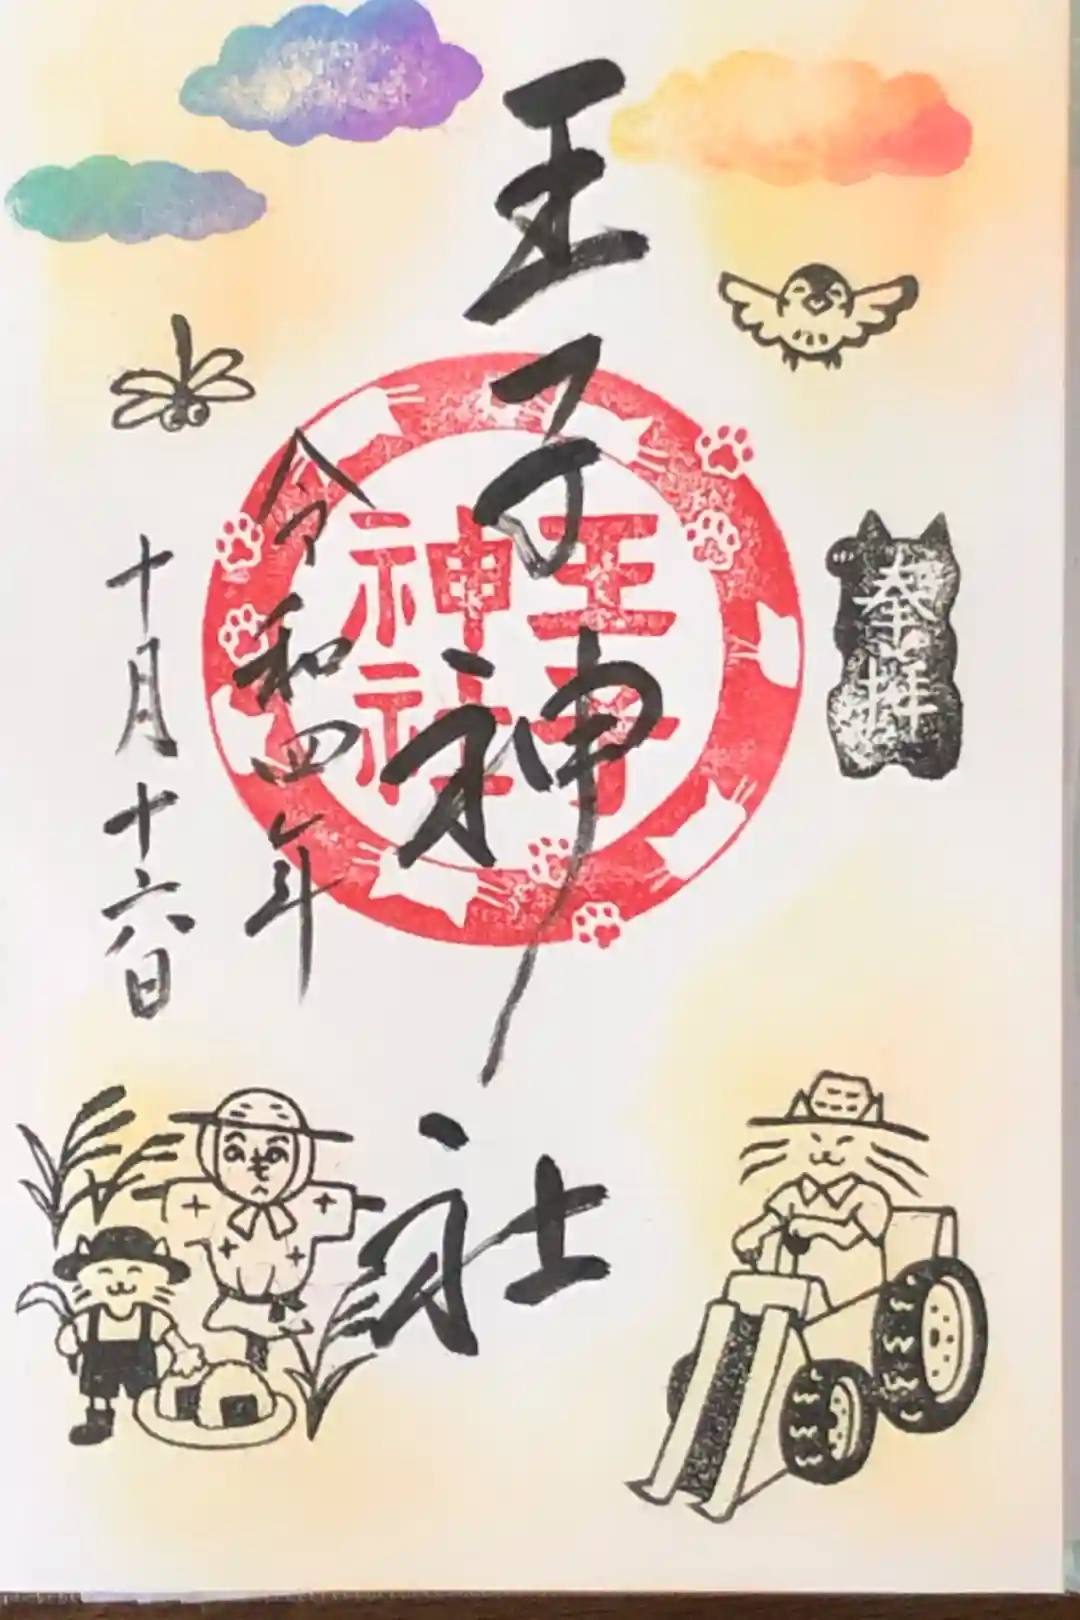 奉拝
王子神社
王子
神社
令和四年
十月十六日